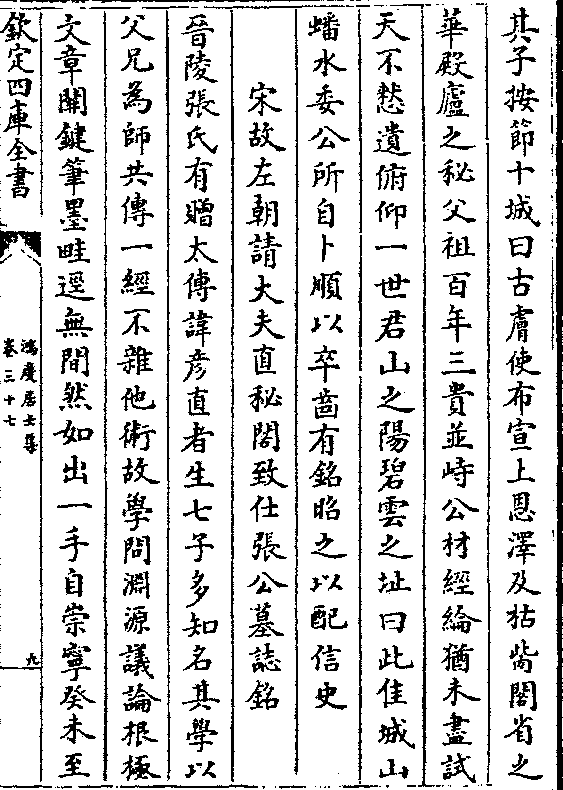 其子按節十城曰古膚使布宣上恩澤及枯胔閣省之
華殿廬之秘父祖百年三貴並峙公材經綸猶未盡試
天不憖遺俯仰一世君山之陽碧雲之址曰此佳城山
蟠水委公所自卜順以卒啬有銘昭之以配信史
宋故左朝請大夫直秘閣致仕張公墓誌銘
晉陵張氏有贈太傅諱彥直者生七子多知名其學以
父兄為師共傳一經不雜他術故學問淵源議論根極
文章關鍵筆墨畦逕無間然如出一手自崇寧癸未至
欽定四庫全書
鴻慶居士集
卷三十七
九